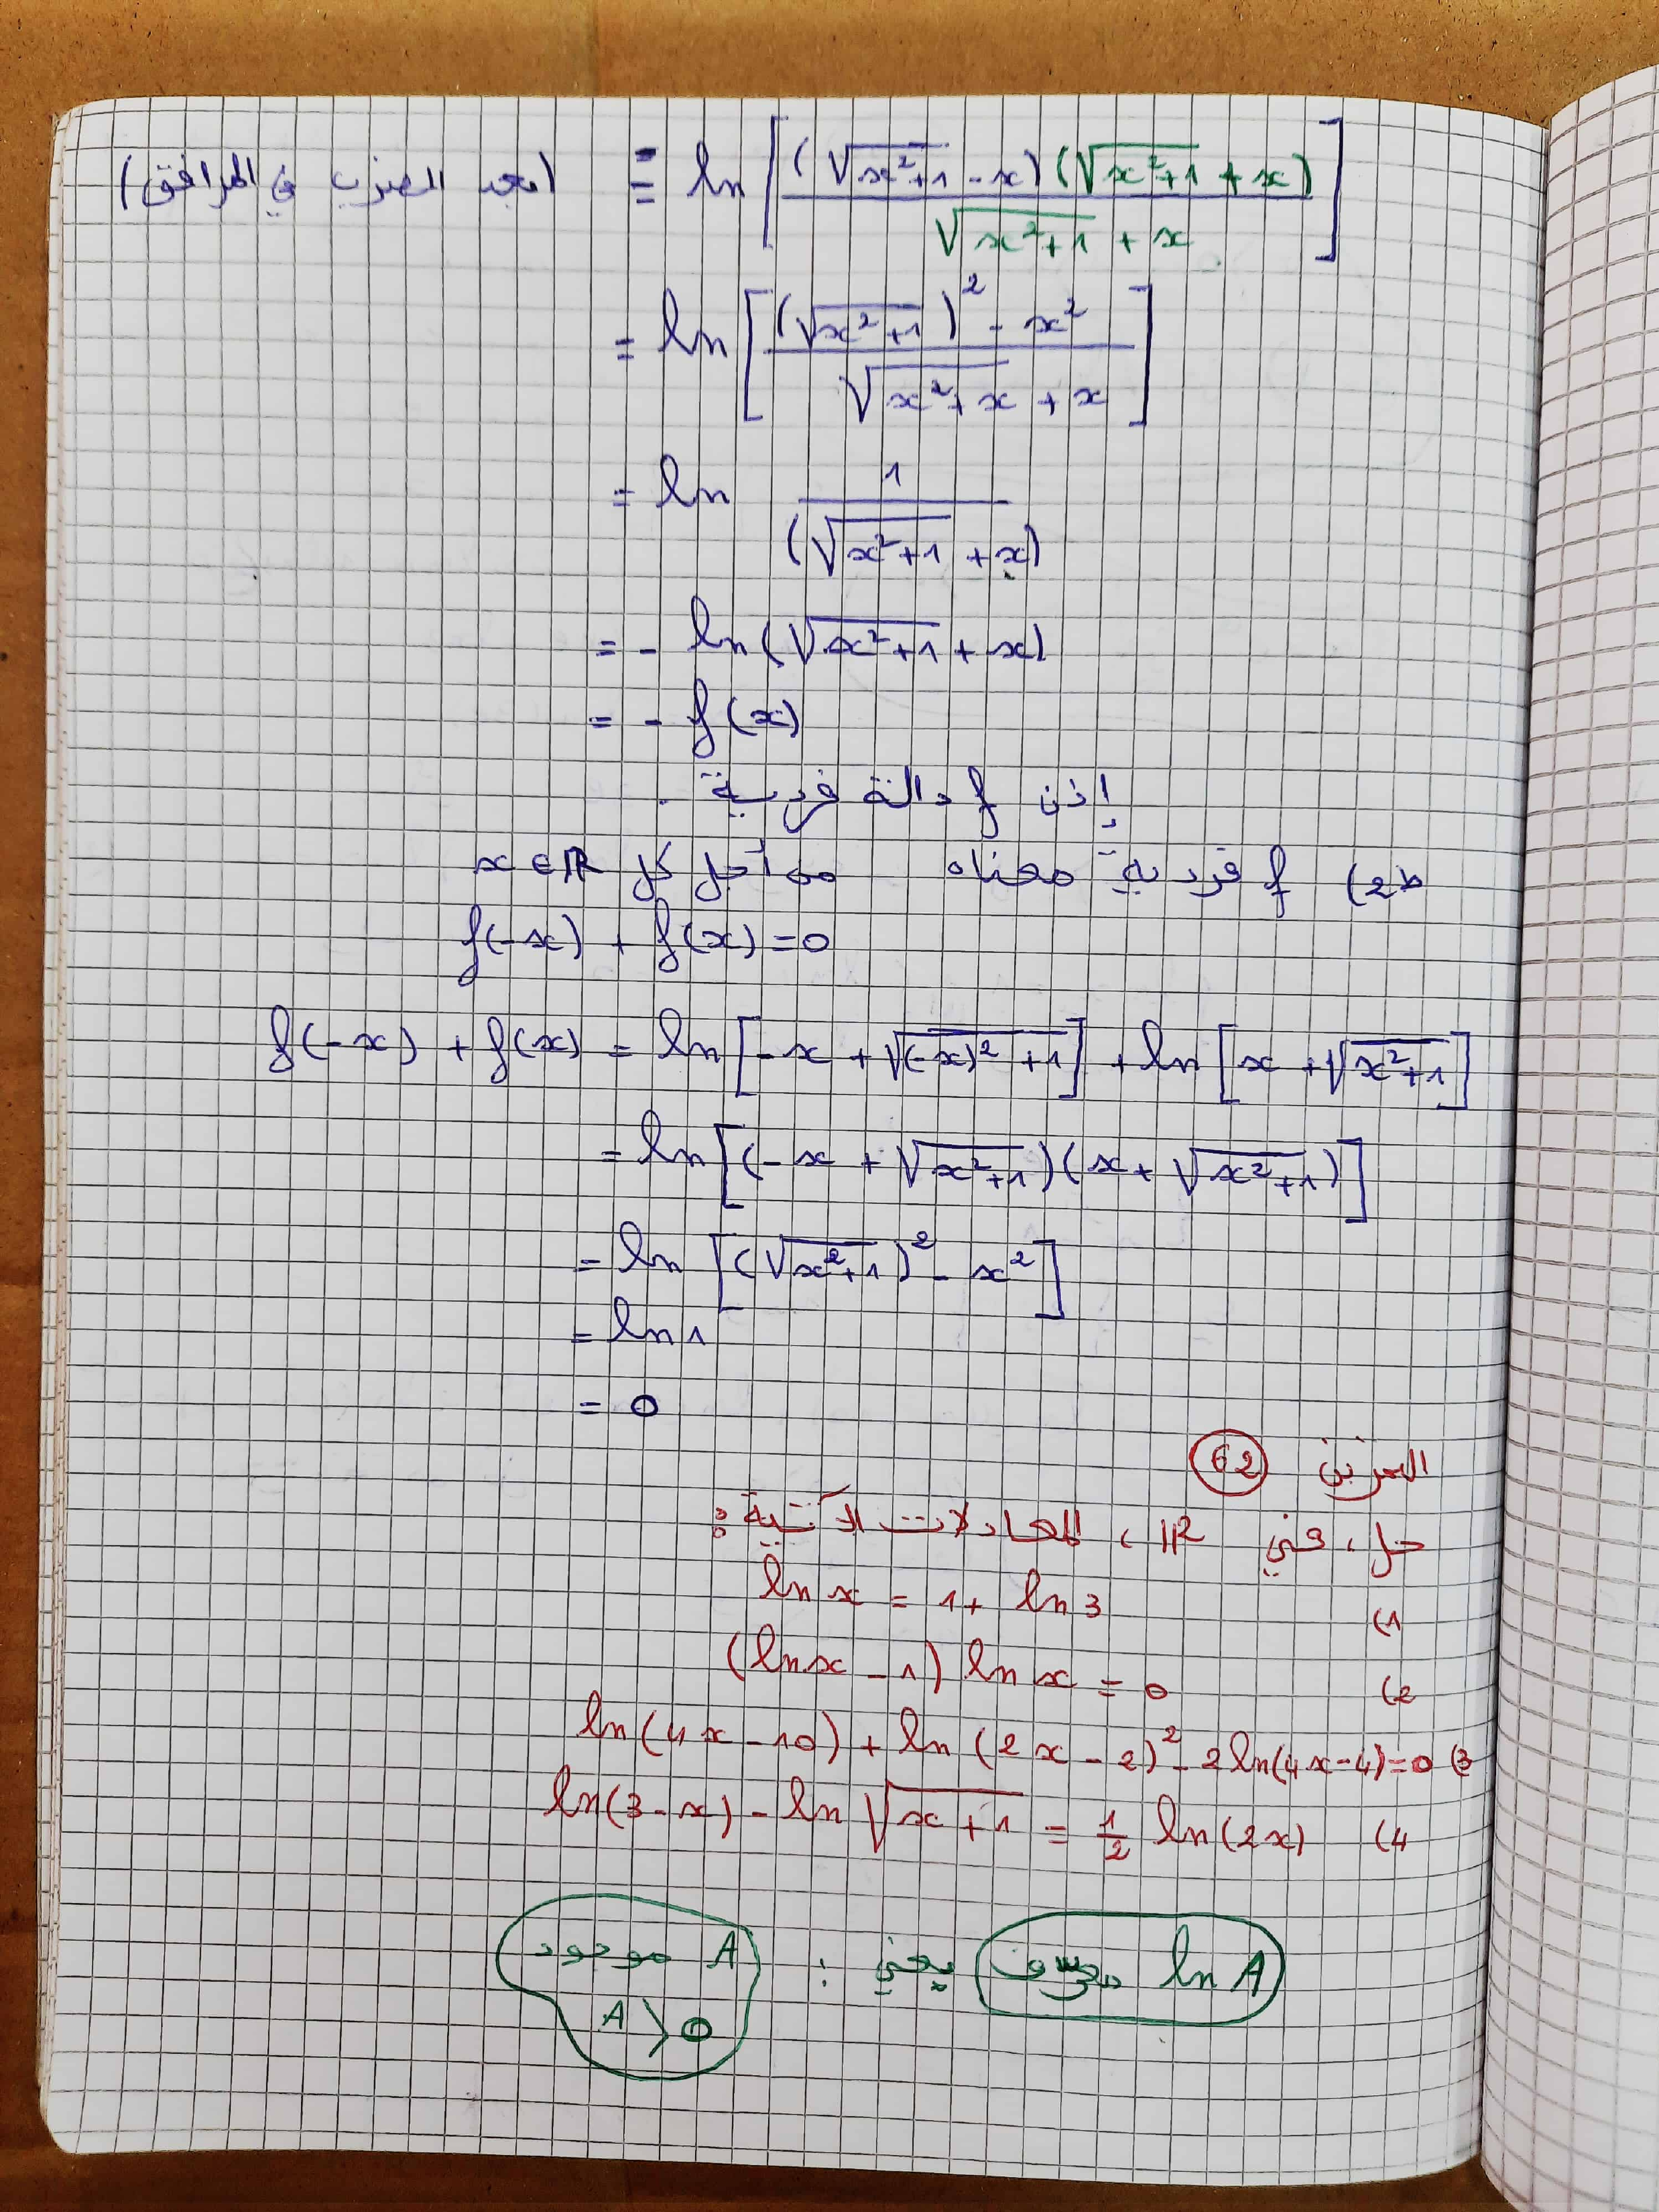 = ln[((√(x²+1) - x)(√(x²+1) + x))/(√(x²+1) + x)] (بعد الضرب في المرافق)
= ln[((√(x²+1))² - x²)/(√(x²+x) + x)]
= ln 1/(√(x²+1) + x)
= - ln(√(x²+1) + x)
= - f(x)
إذن f دالة فردية .
ط2) f فردية معناه من أجل كل x∈ℝ
f(-x) + f(x) = 0
f(-x) + f(x) = ln[-x + √((-x)² + 1)] + ln[x + √(x²+1)]
= ln[(-x + √(x²+1))(x + √(x²+1))]
= ln[(√(x²+1))² - x²]
= ln 1
= 0
التمرين 62
حل، في ℝ، المعادلات الآتية:
1) ln x = 1 + ln 3
2) (ln x - 1) ln x = 0
3) ln(4x - 10) + ln(2x - 2)² - 2 ln(4x - 4) = 0
4) ln(3 - x) - ln √(x + 1) = 1/2 ln(2x)
ln A معرف يعني : A موجود
A > 0